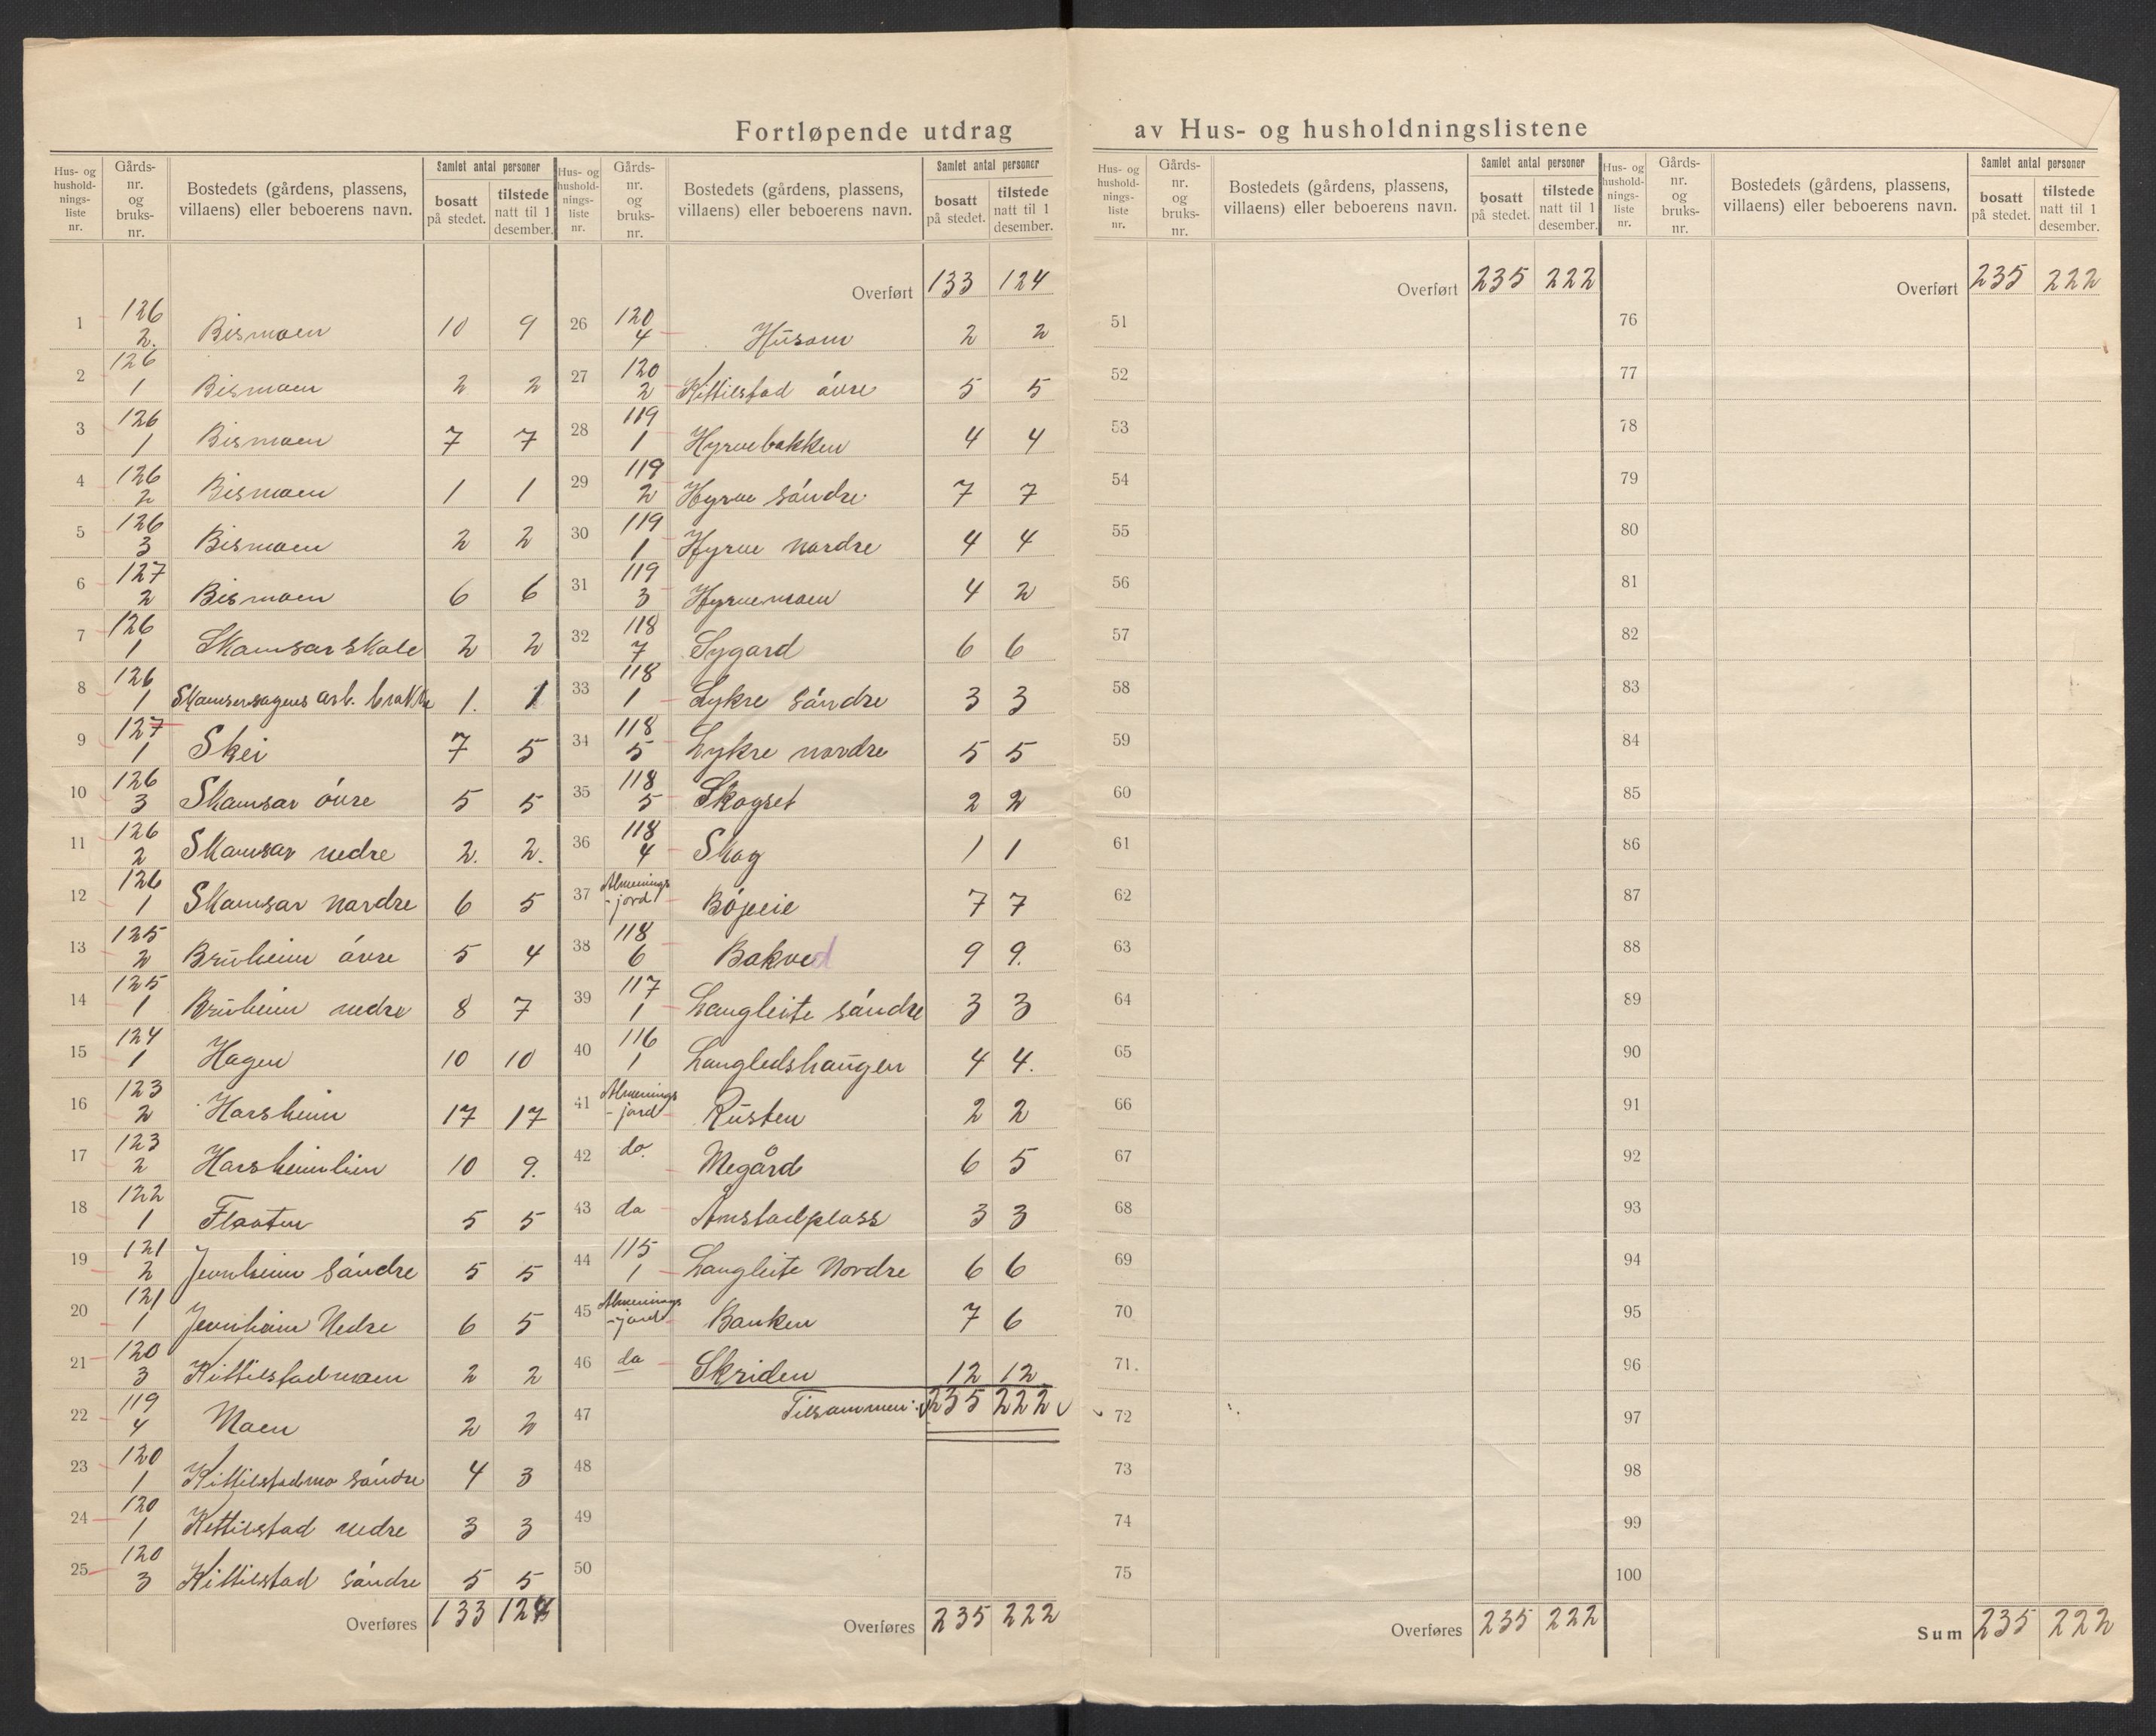 Fortløpende utdrag av Hus- og husholdningslistene
Hus- og hushold-nings-liste nr. Gårds-nr. og bruks-nr. Bostedets (gårdens, plassens, villaens) eller beboerens navn. Samlet antal personer bosatt på stedet. tilstede natt til 1 desember.
1 126 2. Bismoen 10 9
2 126 1 Bismoen 2 2
3 126 1 Bismoen 7 7
4 126 2 Bismoen 1 1
5 126 3 Bismoen 2 2
6 127 2 Bismoen 6 6
7 126 1 Skamsarskole 2 2
8 126 1 Skamsarsagens arb. brakke 1. 1
9 127 1 Skei 7 5
10 126 3 Skamsar óvre 5 5
11 126 2 Skamsar nedre 2. 2.
12 126 1 Skamsar nordre 6 5
13 125 2 Bruheim óvre 5 4
14 125 1 Bruheim nedre 8 7
15 124 1 Hagen 10 10
16 123 2 Harsheim 17 17
17 123 2 Harsheimlien 10 9.
18 122 1 Flaaten 5 5
19 121 2 Jevnheim sóndre 5 5
20 121 1 Jevnheim Nedre 6 5
21 120 3 Kittilstadmoen 2 2
22 119 4 Moen 2 2
23 120 1 Kittilstadmo sóndre 4 3
24 120 1 Kittilstad nedre 3 3
25 120 3 Kittilstad sóndre 5 5
Overføres 133 124
Hus- og hushold-nings-liste nr. Gårds-nr. og bruks-nr. Bostedets (gårdens, plassens, villaens) eller beboerens navn. Samlet antal personer bosatt på stedet. tilstede natt til 1 desember.
Overført 133 124
26 120 4 Húsom 2 2
27 120 2 Kittilstad óvre 5 5
28 119 1 Hyrvebakken 4 4
29 119 2 Hyrve sóndre 7 7
30 119 1 Hyrve nordre 4 4
31 119 3 Hyrvemoen 4 2
32 118 7 Sygard 6 6
33 118 1 Lykre sóndre 3 3
34 118 5 Lykre nordre 5 5
35 118 5 Skogset 2 2
36 118 4 Skog 1 1
37 Almennings-jord Bójeie 7 7
38 118 6 Bakved 9 9.
39 117 1 Langleite sóndre 3 3
40 116 1 Langledshaugen 4 4.
41 Almennings-jord Rusten 2 2
42 do. Megård 6 5
43 do Amstadplass 3 3
44 115 1 Langleite Nordre 6 6
45 Almennings-jord Banken 7 6
46 do Skriden 12 12
47 Tilsammen: 235 222
48
49
50
Overføres 235 222
Hus- og hushold-nings-liste nr. Gårds-nr. og bruks-nr. Bostedets (gårdens, plassens, villaens) eller beboerens navn. Samlet antal personer bosatt på stedet. tilstede natt til 1 desember.
Overført 235 222
51
52
53
54
55
56
57
58
59
60
61
62
63
64
65
66
67
68
69
70
71
72
73
74
75
Overføres 235 222
Hus- og hushold-nings-liste nr. Gårds-nr. og bruks-nr. Bostedets (gårdens, plassens, villaens) eller beboerens navn. Samlet antal personer bosatt på stedet. tilstede natt til 1 desember.
Overført 235 222
76
77
78
79
80
81
82
83
84
85
86
87
88
89
90
91
92
93
94
95
96
97
98
99
100
Sum 235 222